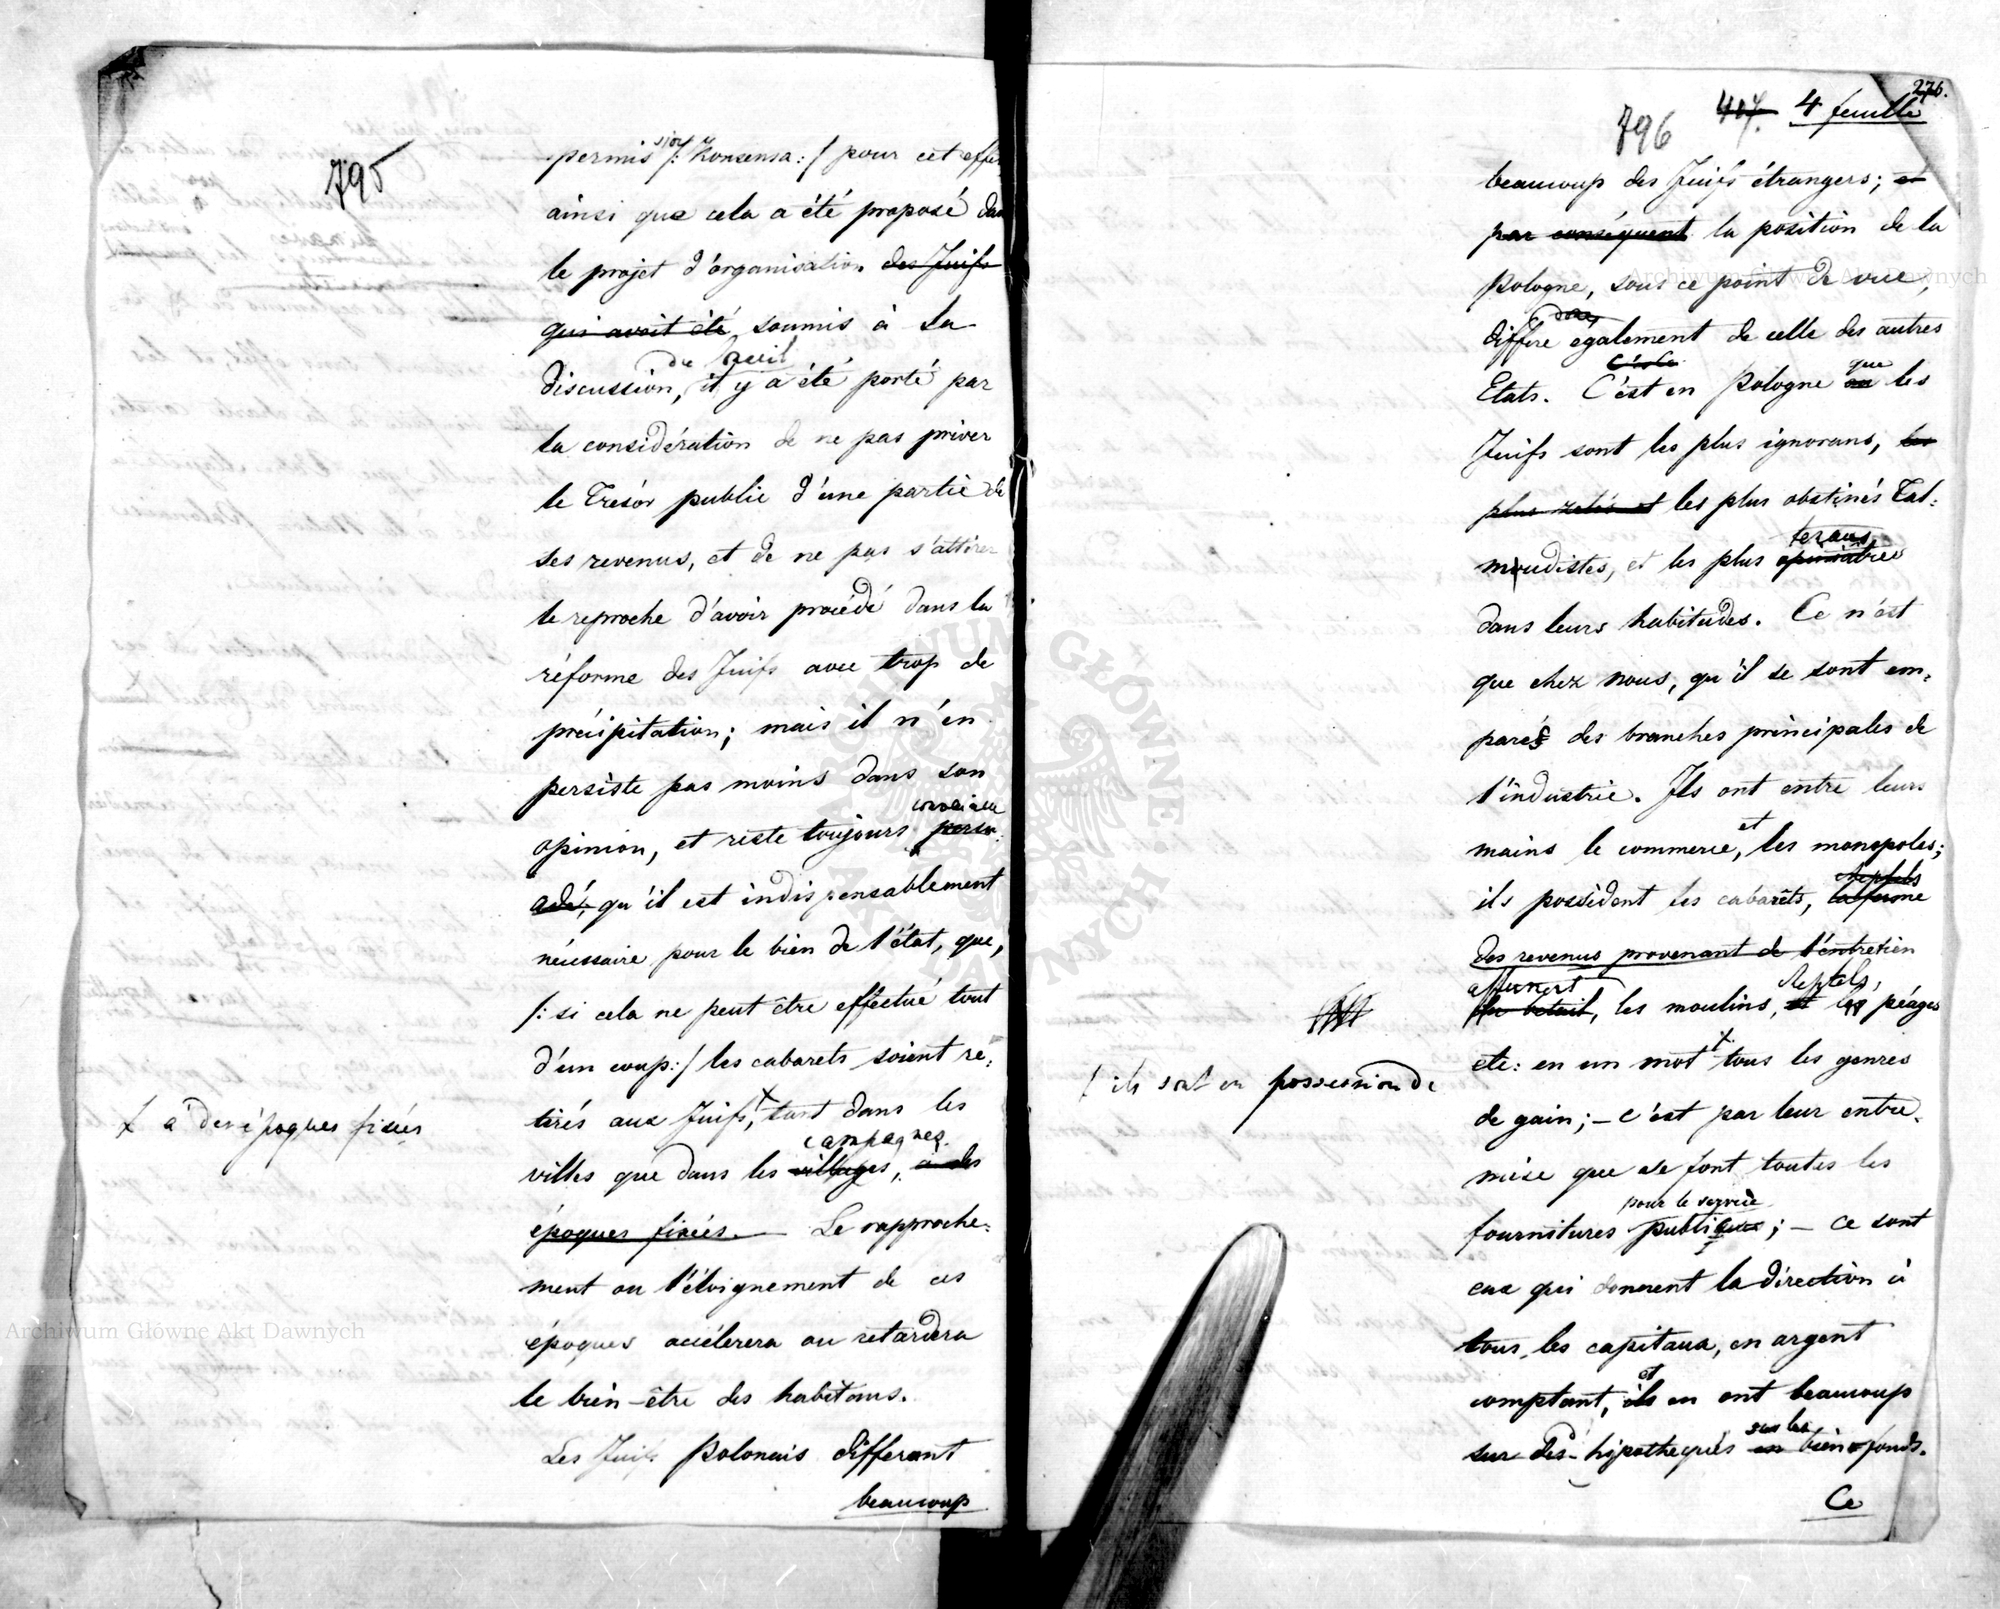 795
permis /: Konsensa :/ pour cet effet
ainsi que cela a été proposé dans
le projet d'organisation des Juifs
qui avoit été soumis à la
discussion, il y a été porté par
la considération de ne pas priver
le Trésor public d'une partie de
ses revenus, et de ne pas s'attirer
le reproche d'avoir procédé dans la
réforme des Juifs avec trop de
précipitation; mais il n'en
persiste pas moins dans son
opinion, et reste toujours persu
adé, qu'il est indispensablement
nécessaire pour le bien de l'état, que,
/: si cela ne peut être effectué tout
d'un coup :/ les cabarets soient re:
tirés aux Juifs, tant dans les
à des époques fixées
campagnes
villes que dans les villages, à des
époques fixées. — Le rapproche:
ment ou l'éloignement de ces
époques accélerera ou retardera
le bien-être des habitans.
Les Juifs Polonais different
beaucoup
276.
796 407. 4 feuille
beaucoup des Juifs étrangers; et
par conséquent la position de la
Pologne, sous ce point de vue,
donc
differe egalement de celle des autres
que
Etats. C'est en Pologne ou les
Juifs sont les plus ignorans, les
plus zelés et les plus obstinés Tal:
moudistes, et les plus opiniâtres
dans leurs habitudes. Ce n'est
que chez nous, qu'il se sont em:
parés des branches principales de
l'industrie. Ils ont entre leurs
et
mains le commerce, les monopoles;
cheptels
ils possèdent les cabarêts, la ferme
des revenus provenant de l'entretien
Cheptels,
du bétail, les moulins, et les péages
etc: en un mot tous les genres
/ ils sont en possession de
de gain; — c'est par leur entre:
mise que se font toutes les
pour le service
fournitures publiques; — ce sont
eux qui donnent la direction à
tous les capitaux, en argent
et
comptant, ils en ont beaucoup
sur les
sur des hipotheques en bien-fonds.
Ce
Archiwum Główne Akt Dawnych
Archiwum Główne Akt Dawnych